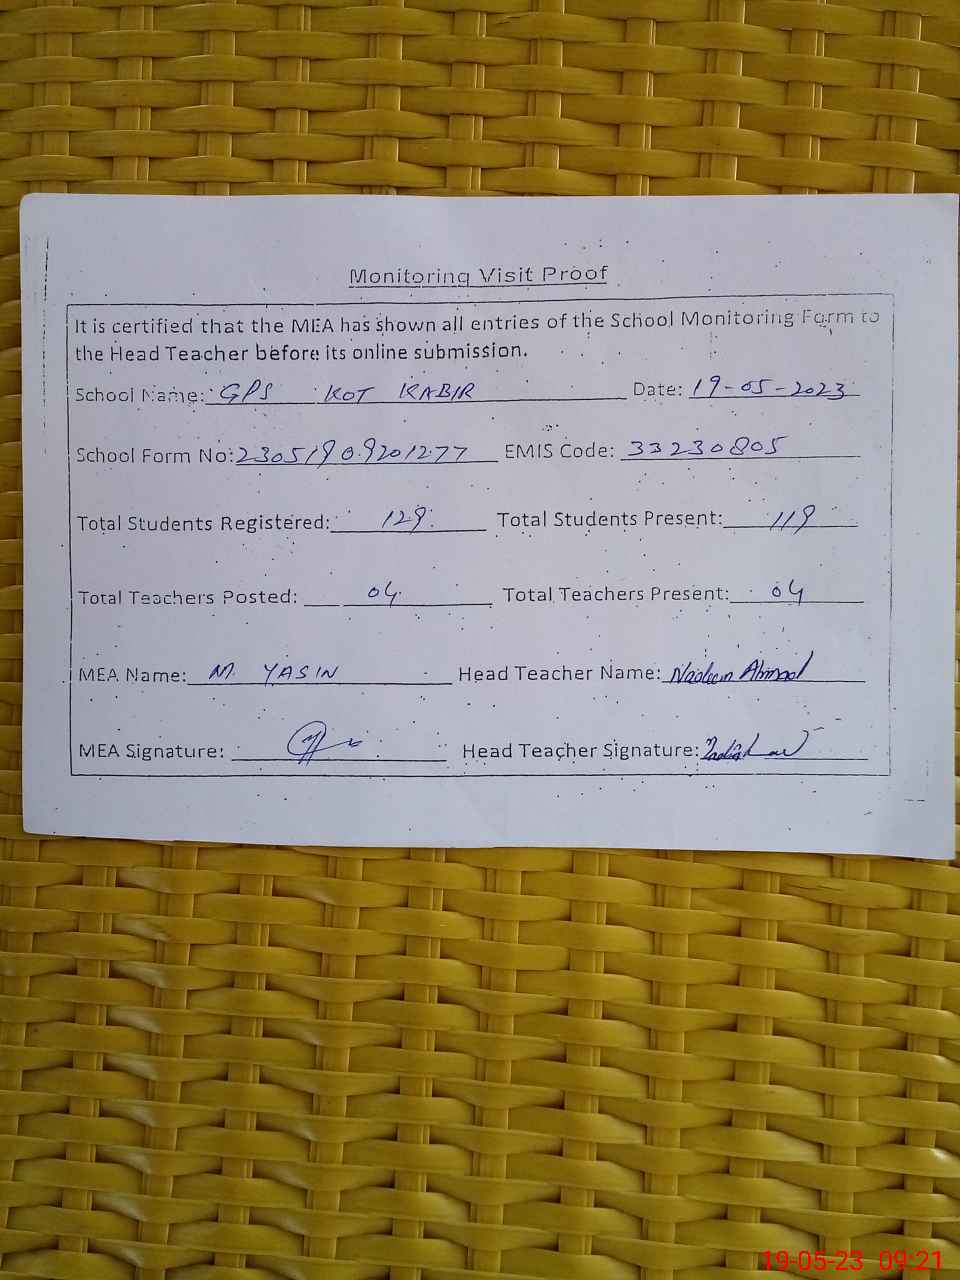 Monitoring Visit Proof
It is certified that the MEA has shown all entries of the School Monitoring Form to
the Head Teacher before its online submission.
School Name: GPS KOT KABIR Date: 19-05-2023
School Form No: 23051909201277 EMIS Code: 33230805
Total Students Registered: 129 Total Students Present: 119
Total Teachers Posted: 04 Total Teachers Present: 04
MEA Name: M. YASIN Head Teacher Name: Nadeem Ahmad
MEA Signature: Head Teacher Signature:
19-05-23 09:21